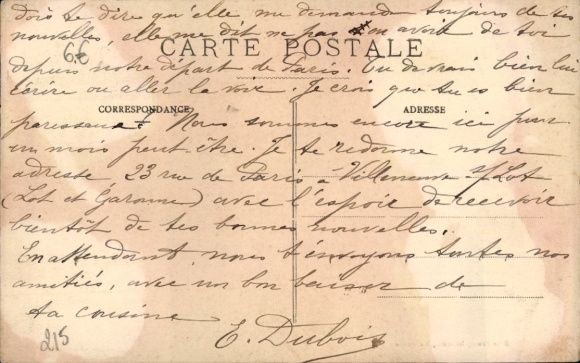 dois te dire qu'elle me demande toujours de tes
nouvelles, elle me dit ne pas en avoir de toi
6€
CARTE POSTALE
depuis notre départ de Paris. Tu devrais bien lui
écrire ou aller la voir. Je crois que tu es bien
CORRESPONDANCE
ADRESSE
paresseuse! Nous sommes encore ici pour
un mois peut être. Je te redonne notre
adresse 23 rue de Paris a Villeneuve s/Lot
(Lot et Garonne) avec l'espoir de recevoir
bientôt de tes bonnes nouvelles.
En attendant nous t'envoyons toutes nos
amitiés, avec un bon baiser de
ta cousine
E. Dubois
215